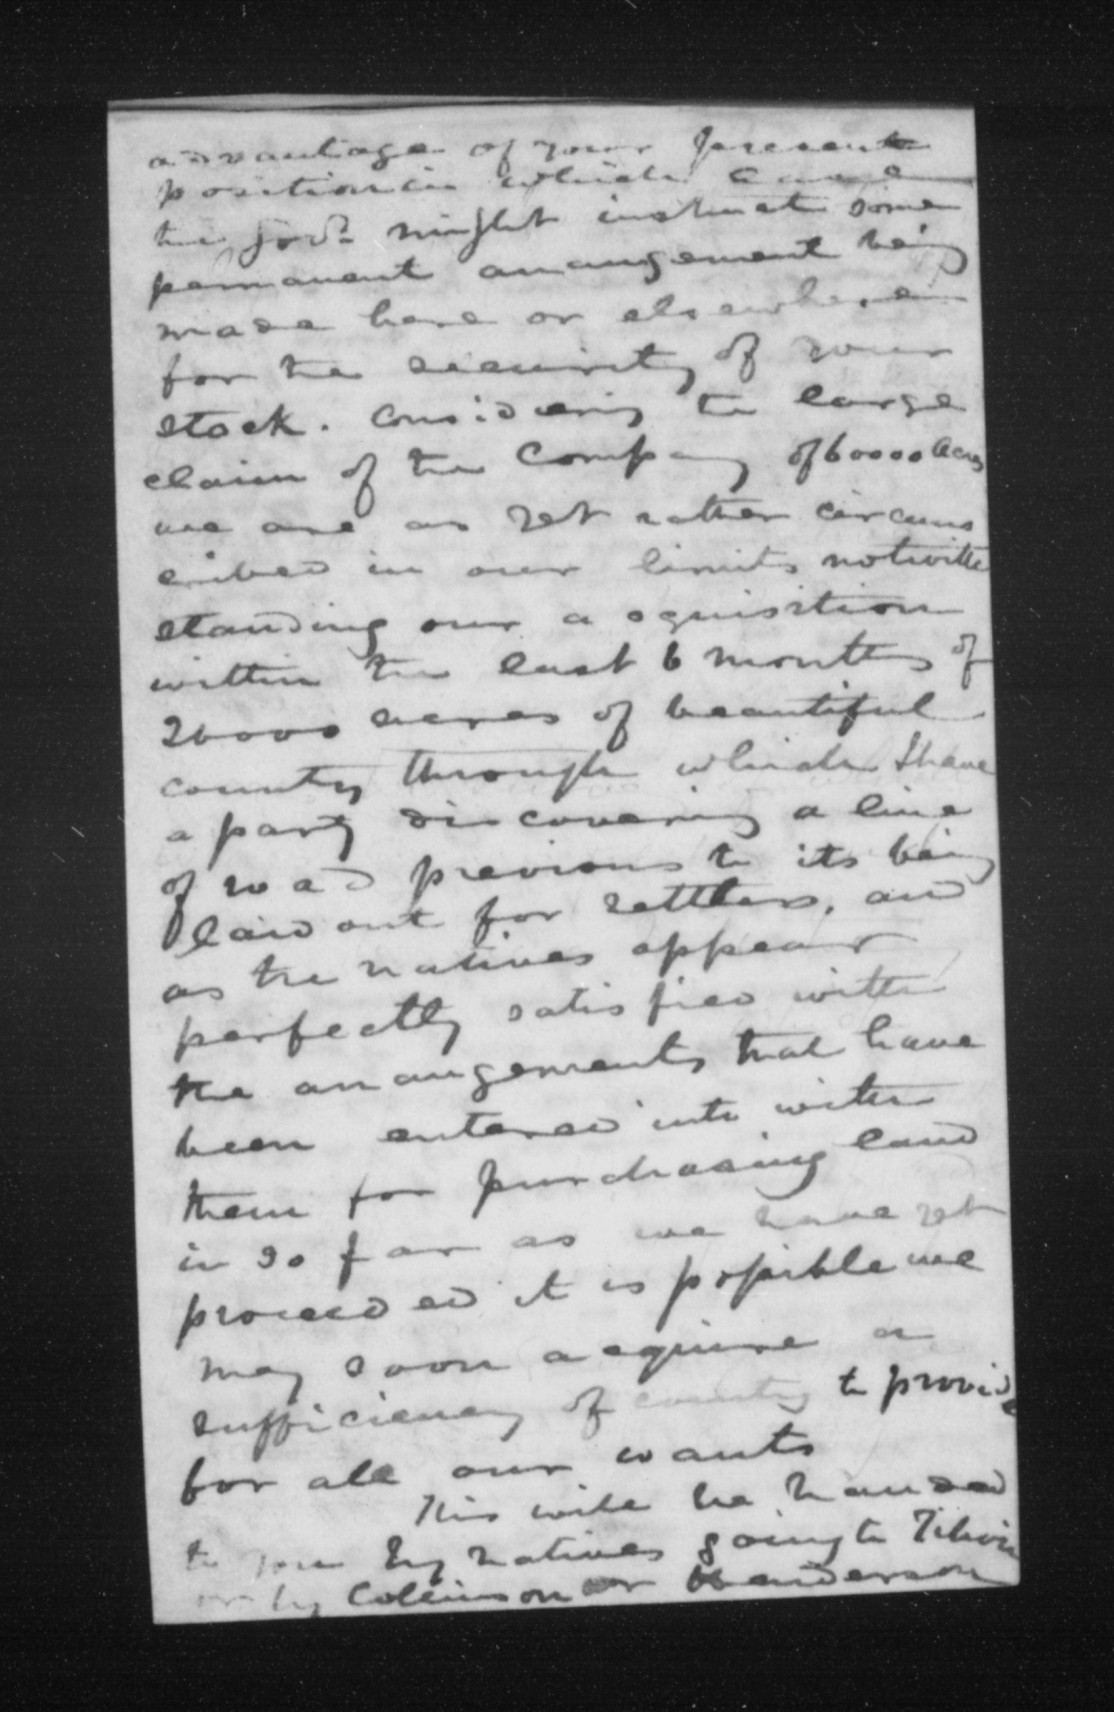 advantage of your present
position in which case
the Govt might instruct some
permanent arrangement being
made here or elsewhere
for the security of your
stock. Considering the large
claim of the Company of 60000 acres
we are as yet rather circums
cribed in our limits notwith
standing our acquisition
within the last 6 months of
20000 acres of beautiful
country through which I have
a party discovering a line
of road previous to its being
laid out for settlers, and
as the natives appear
perfectly satisfied with
the arrangements that have
been entered into with
them for purchasing land
in so far as we have yet
proceeded it is possible we
may soon acquire a
sufficiency of country to provide
for all our wants
This will be handed
to you by natives going to
or by Collinson or Henderson